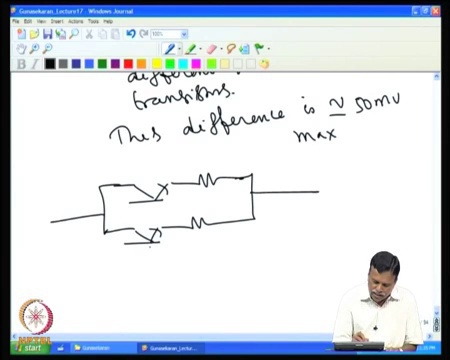 Gunasekaran_Lecture17 - Windows Journal
File Edit View Insert Actions Tools Help
100%
B I
transistors.
This difference is ≃ 50mV
max
NPTEL
start
Gunasekaran
Gunasekaran_Lectur...